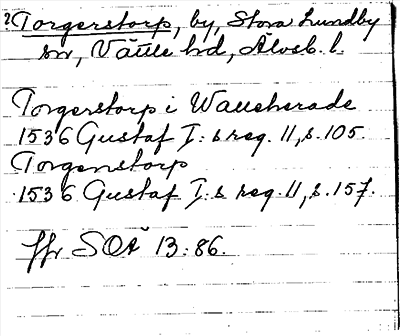 ? Torgerstorp, by, Stora Lundby
sn, Vättle hd, Älvsb. l.
Torgerstorp i WaUeherade
1536 Gustaf I:s reg. 11, s. 105.
Torgenstorp
1536 Gustaf I:s reg. 11, s. 157.
jfr SOÄ 13:86.